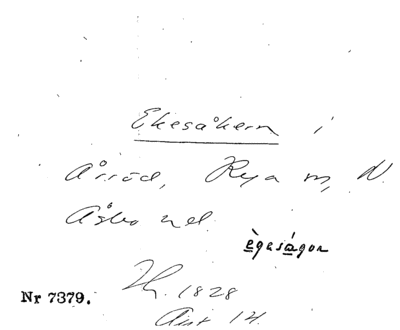 Ekesåkern i
Årröd, Rya sn, N.
Åsbo hd.
ègasågon
Nr 7379.
1828
Akt 14.